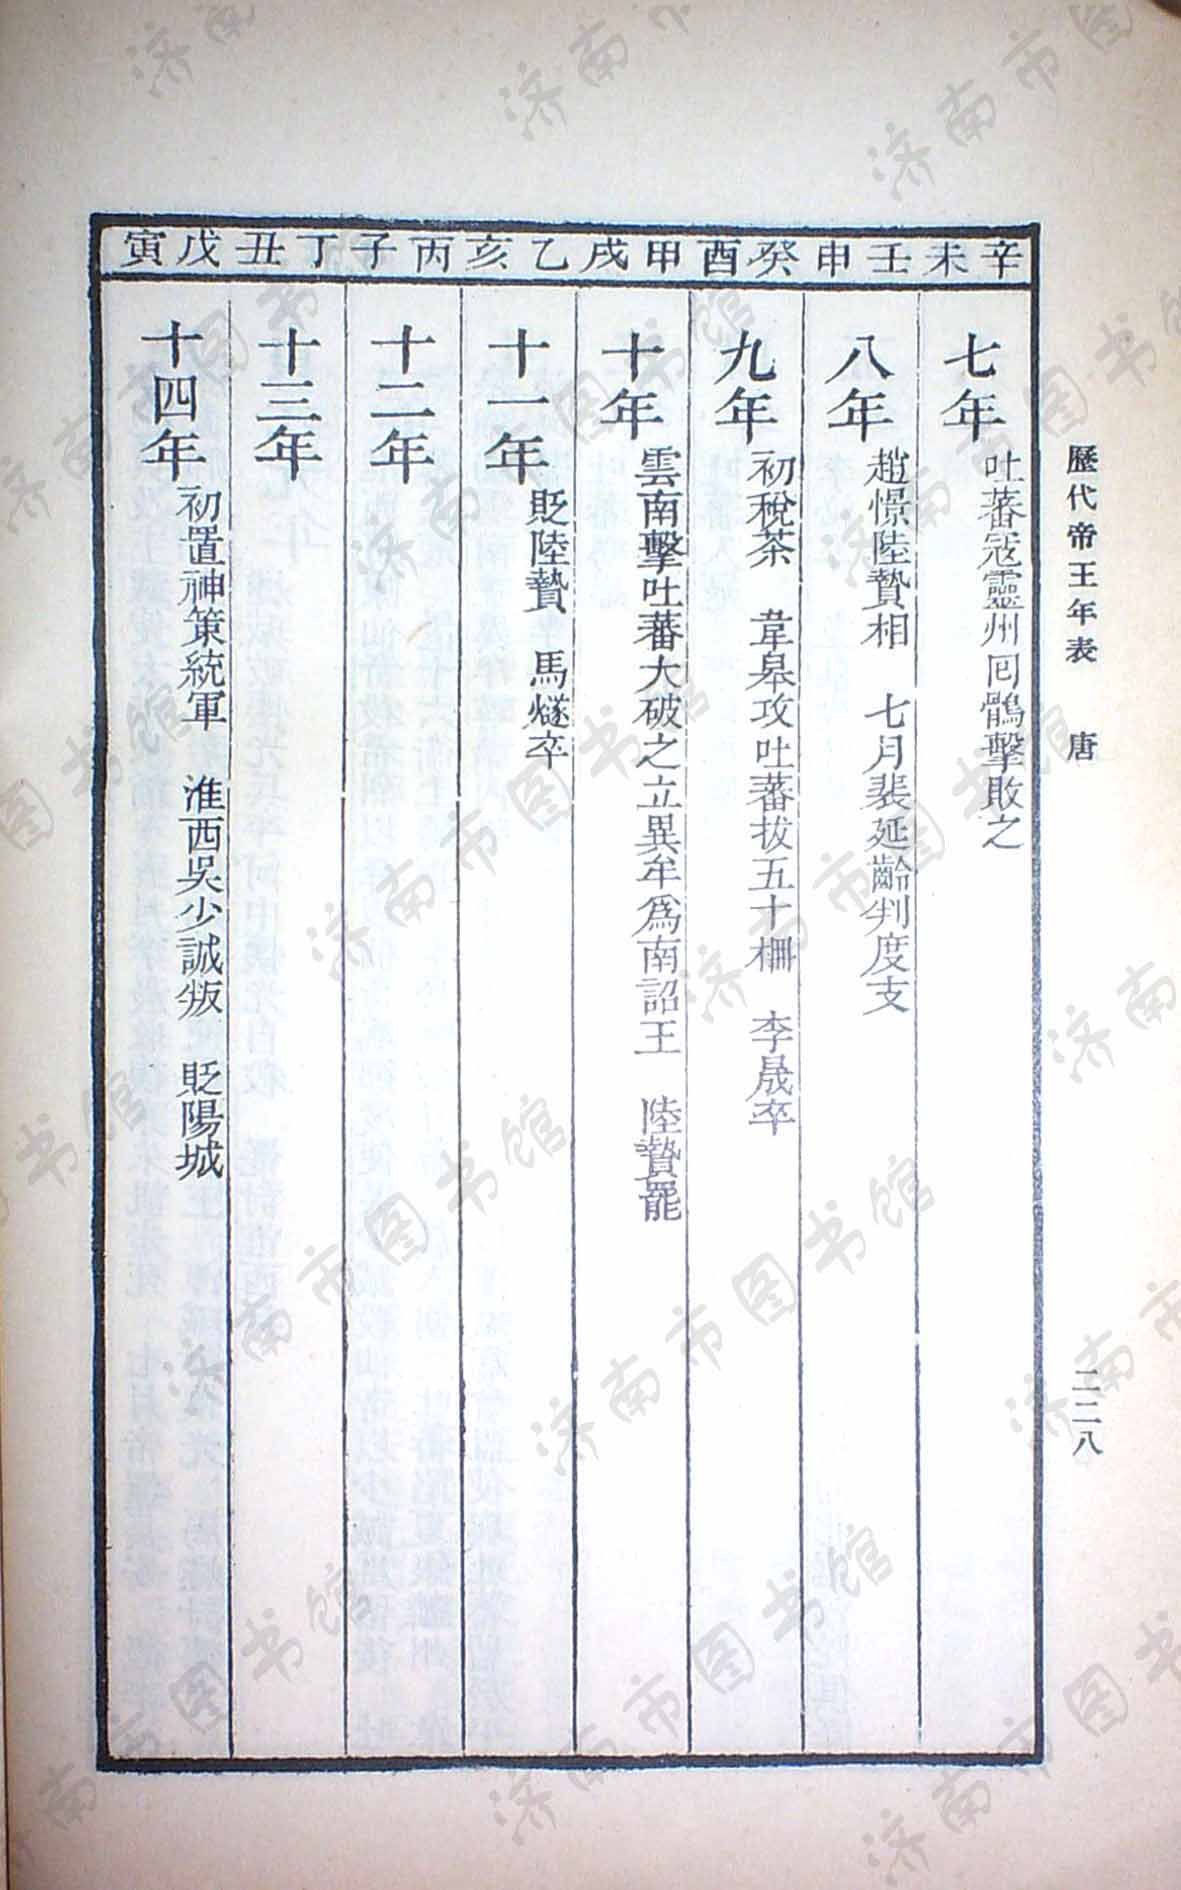 歷代帝王年表　唐
二二八
辛未　壬申　癸酉　甲戌　乙亥　丙子　丁丑　戊寅
七年　吐蕃寇靈州回鶻擊敗之
八年　趙憬陸贄相　七月裴延齡判度支
九年　初稅茶　韋皋攻吐蕃拔五十柵　李晟卒
十年　雲南擊吐蕃大破之立異牟爲南詔王　陸贄罷
十一年　貶陸贄　馬燧卒
十二年
十三年
十四年　初置神策統軍　淮西吳少誠叛　貶陽城
济南市图书馆